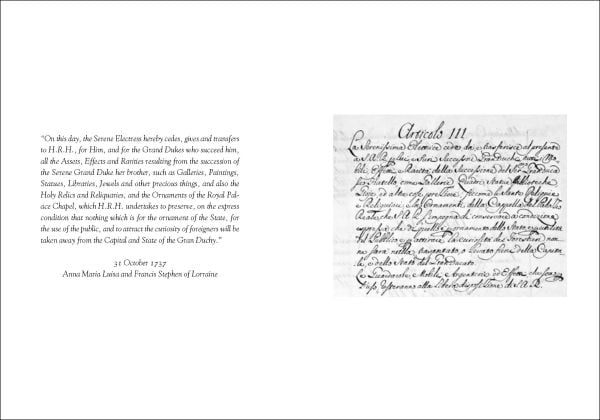 "On this day, the Serene Electress hereby cedes, gives and transfers
to H.R.H., for Him, and for the Grand Dukes who succeed him,
all the Assets, Effects and Rarities resulting from the succession of
the Serene Grand Duke her brother, such as Galleries, Paintings,
Statues, Libraries, Jewels and other precious things, and also the
Holy Relics and Reliquaries, and the Ornaments of the Royal Pal-
ace Chapel, which H.R.H. undertakes to preserve, on the express
condition that nothing which is for the ornament of the State, for
the use of the public, and to attract the curiosity of foreigners will be
taken away from the Capital and State of the Gran Duchy."
31 October 1737
Anna Maria Luisa and Francis Stephen of Lorraine
Articolo III
La Serenissima Elettrice cede, da, e trasferisce al presente
a S.A.R. Successori Gran Duchi
della Successione del
Fratello come Gallerie Quadri Statue Biblioteche
Gioje ed altre cose preziose
Reliquiari Ornamenti della Cappella del Palazzo
Reale, che S.A.R. di conservare a condizione
espressa che di quello ornamento dello Stato
del Pubblico la curiosità dei Forestieri non
ne sarà nulla trasportato, o levato fuori della Capita
le, e dello Stato del Gran Ducato.
Mobili Argenterie ed Effetti
alla S.A.R.